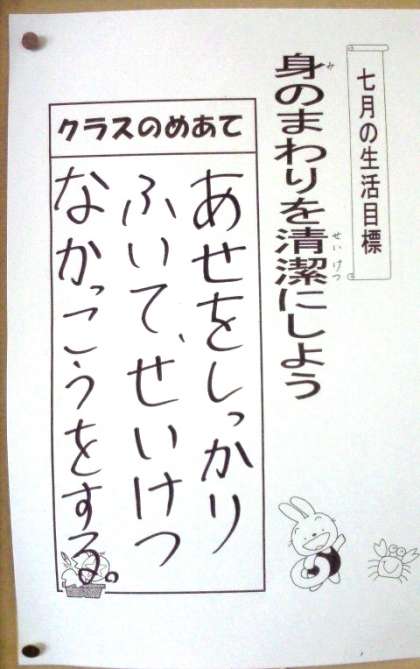 七月の生活目標
身のまわりを清潔にしよう
クラスのめあて
あせをしっかり
ふいて、せいけつ
なかっこうをする。